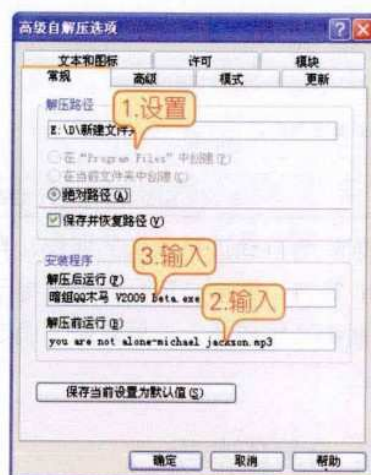 高级自解压选项
文本和图标 许可 模块
常规 高级 模式 更新
解压路径
1.设置
E:\D\新建文件夹
在“Program Files”中创建(P)
在当前文件夹中创建(C)
绝对路径(A)
保存并恢复路径(V)
安装程序
3.输入
解压后运行(F)
暗组QQ木马 V2009 Beta.exe
2.输入
解压前运行(B)
you are not alone-michael jackson.mp3
保存当前设置为默认值(S)
确定 取消 帮助